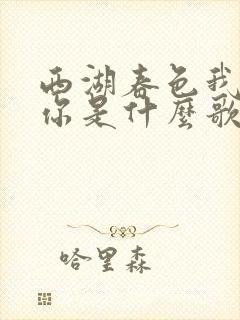 西湖春色我
你是什麼歌
哈里森